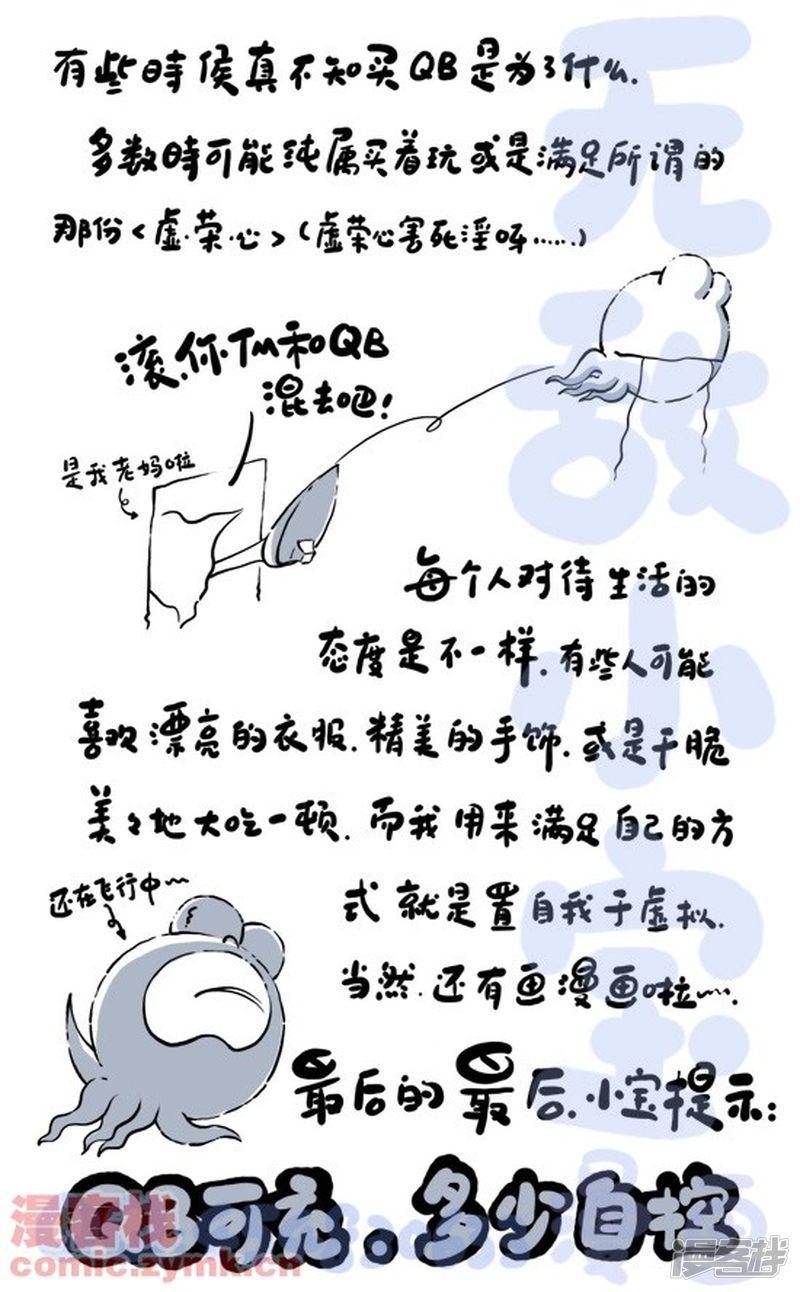 有些時候真不知买QB是为了什么.
多数時可能纯属买着玩或是满足所谓的
那份<虚·荣·心>(虚荣心害死淫呀……)
滚.你TM和QB
混去吧!
是我老妈啦
每个人对待生活的
态度是不一样.有些人可能
喜欢漂亮的衣服.精美的手饰.或是干脆
美々地大吃一顿.而我用来满足自己的方
还在飞行中~~
式就是置自我于虚拟.
当然.还有画漫画啦~~.
最后的最后.小宝提示:
QB可充。多少自控
无敌小宝
漫客栈
comic.zymk.cn
漫客栈